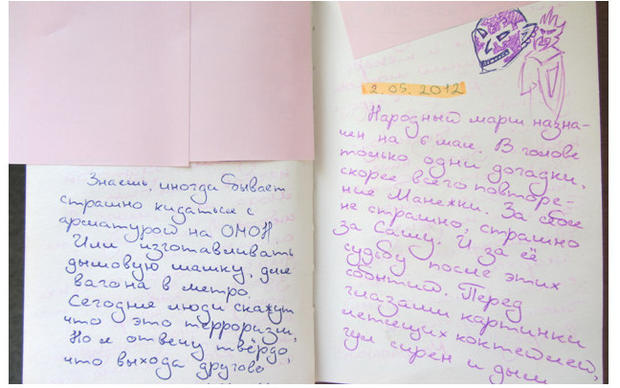 Знаешь, иногда бывает
страшно кидаться с
арматурой на ОМОН.
Или изготавливать
дымовую шашку, для
вагона в метро.
Сегодня люди скажут
что это терроризм,
Но я отвечу твёрдо,
что выхода другого
2.05.2012
Народный марш назна-
чен на 6 мая. В голове
только одни догадки,
скорее всего повторе-
ние Манежки. За себя
не страшно, страшно
за Сашу. И за её
судьбу после этих
событий. Перед
глазами картинки
летящих коктейлей,
гул сирен и дым